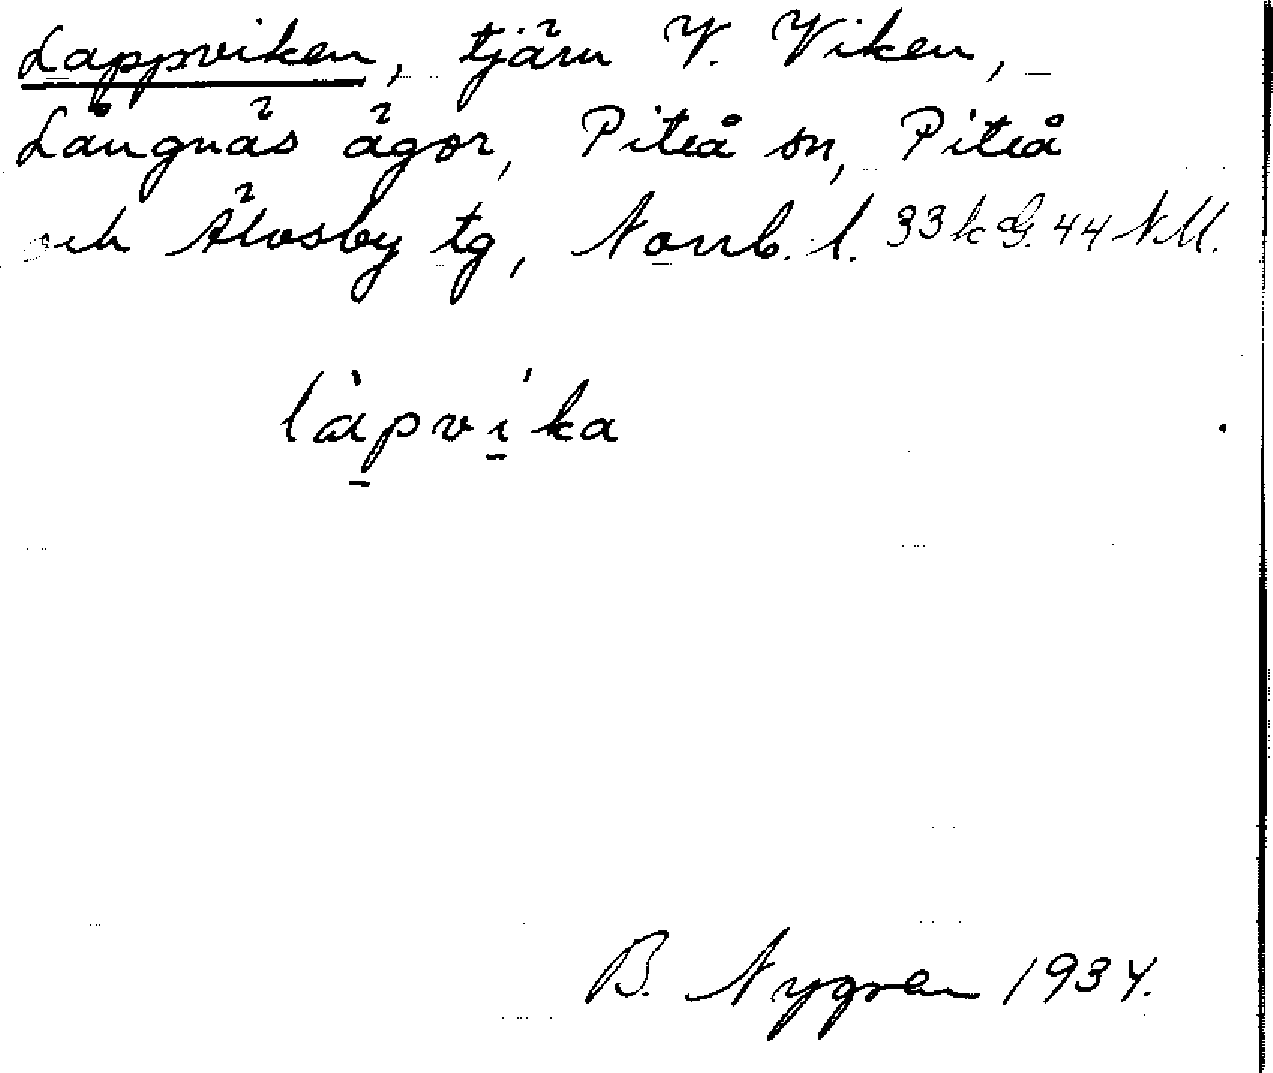 Lappviken, tjärn V. Viken,
Långnäs ägor, Piteå sn, Piteå
och Älvsby tg, Norrb. l. 33 k G. 44 N.M.
làpvika
B. Nygren 1934.